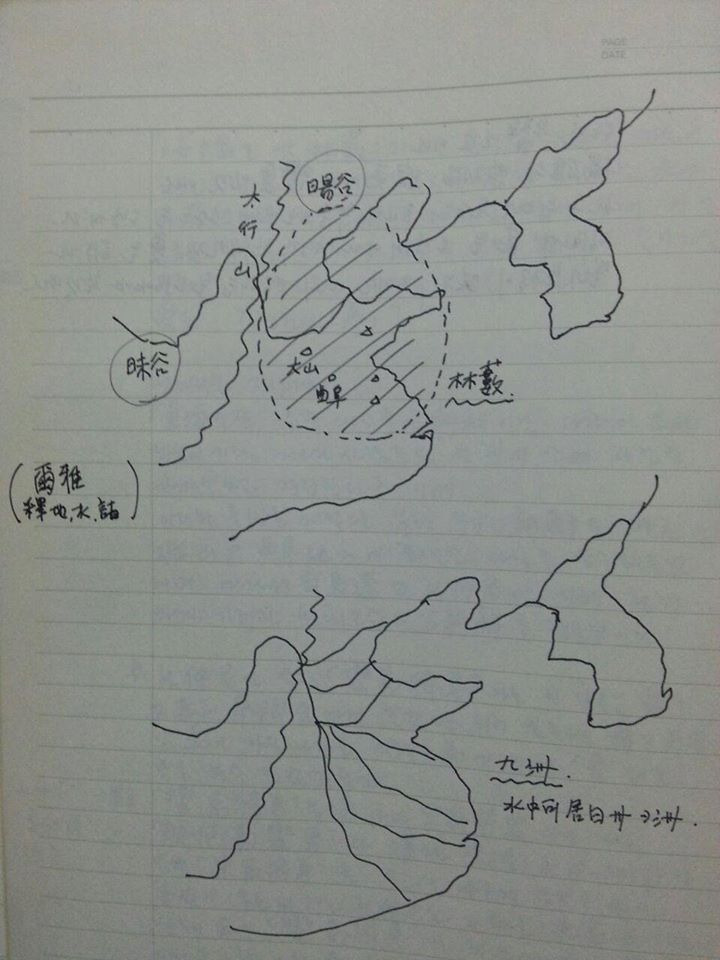 PAGE
DATE
暘谷
太行
山
昧谷
大山
曲阜
林藪.
(爾雅
釋地,水,詁)
九洲.
水中可居曰州→洲.